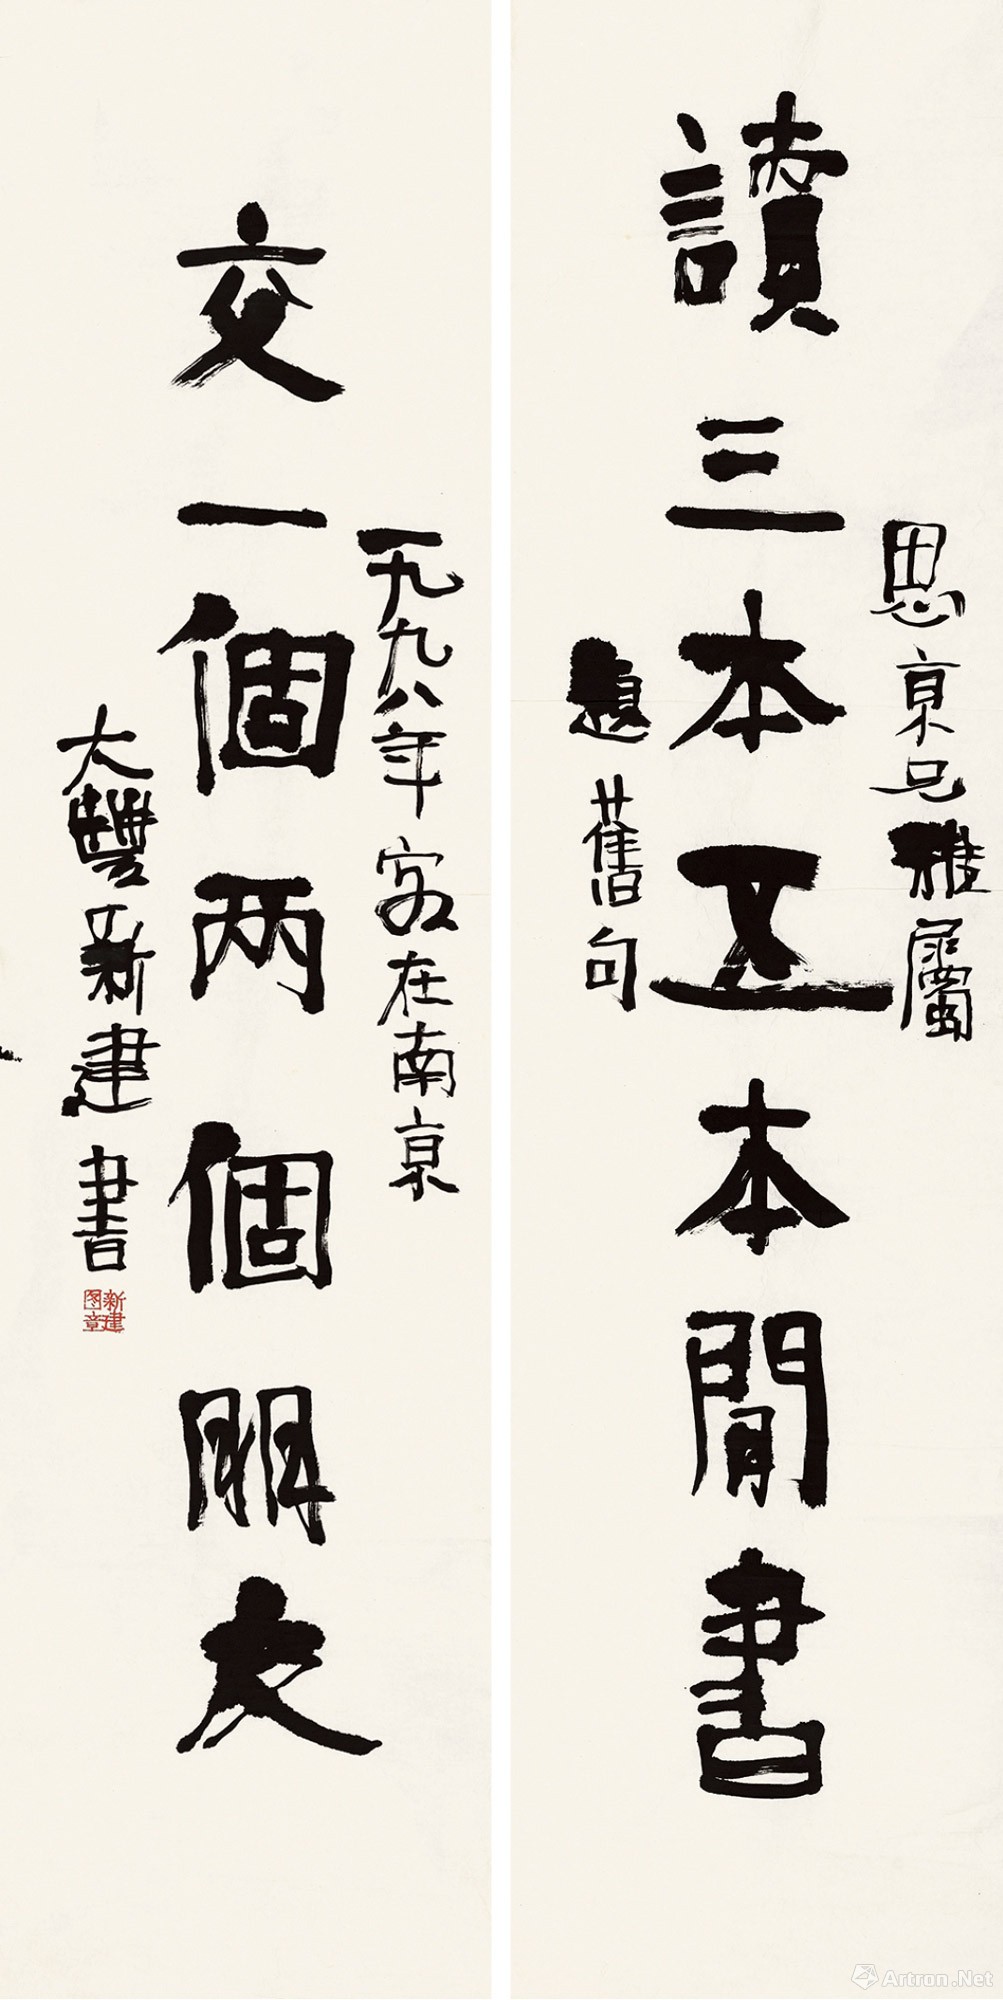 讀三本五本閒書
思京兄雅屬
題舊句
交一個两個朋友
一九九八年客在南京
大豐新建書
新建图章
Artron.Net